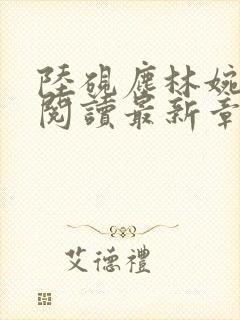 陸硯塵林婉
閱讀最新章
艾德禮